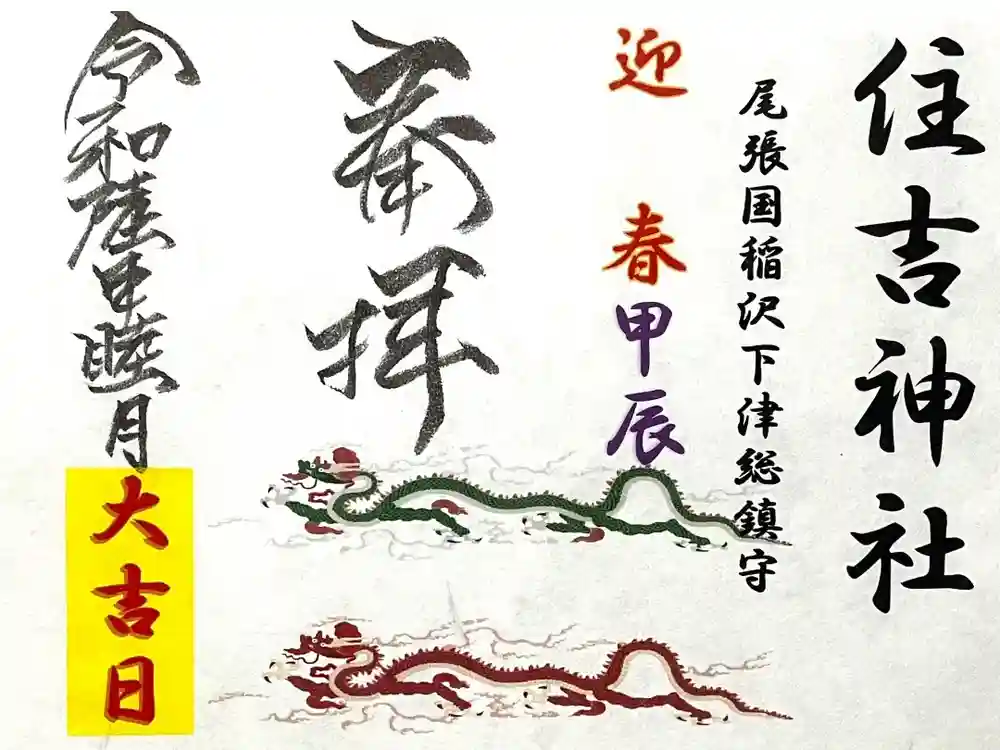 住吉神社
尾張国稲沢下津総鎮守
迎春甲辰
奉拝
令和陸年睦月
大吉日